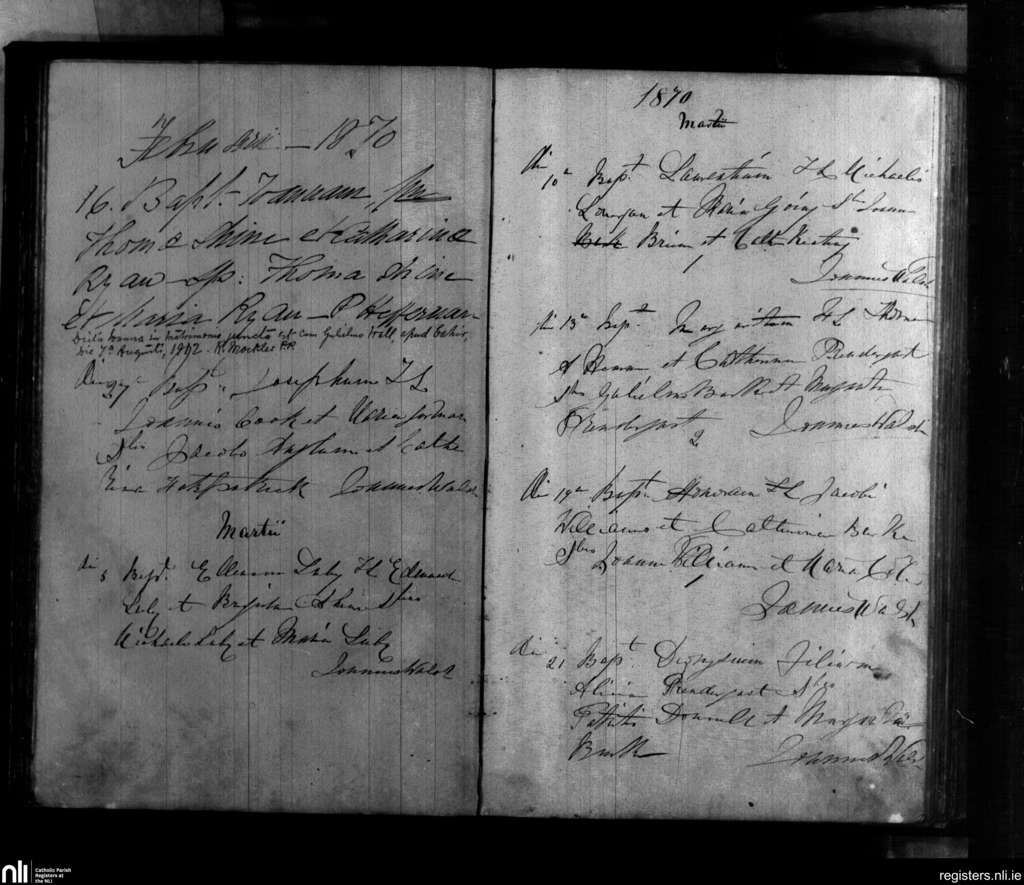 Februarii - 1870
16. Bapt. Joannam, fm
Thomæ Shine et Catharinæ
Ryan - Sp: Thoma Shine
et Maria Ryan - P Heffernan
Dicta Joanna in matrimonio juncta est cum Gulielmo Hall, apud
die 7º Augusti, 1912 - R. Mockler P.P.
Die 27 Bapt. Josephum FL
Joannis Cook et Maria Gorman
Sbs Jacobo et Cathe
rina Fitzpatrick Joannes Walsh
Martii
die 5 Bapt. Ellenam Luby FL Edmundi
Luby et Brigitta Shine Sbus
Michaele Luby et Maria Luby
Joannes Walsh
1870
Martii
Die 10a Bapt Laurentium FL Michaelis
Longan et Maria Going Sb Joanne
Brien et Cath Keating
1
Joannes Walsh
die 13a Bapt. FL
et Catherina Prendergast
Sbus Gulielmo Burke et Margarita
Prendergast
2
Joannes Walsh
Die 19a Bapt. Honoram FL Jacobi
Williams et Catherina Burke
Sbus Joanne Williams et Maria
1
Joannes Walsh
Die 21 Bapt. Dionysium filium
Alicia Prendergast Sbus
Donnell et Margarita
Burke
Joannes Walsh
nli
Catholic Parish
Registers at
the NLI
registers.nli.ie